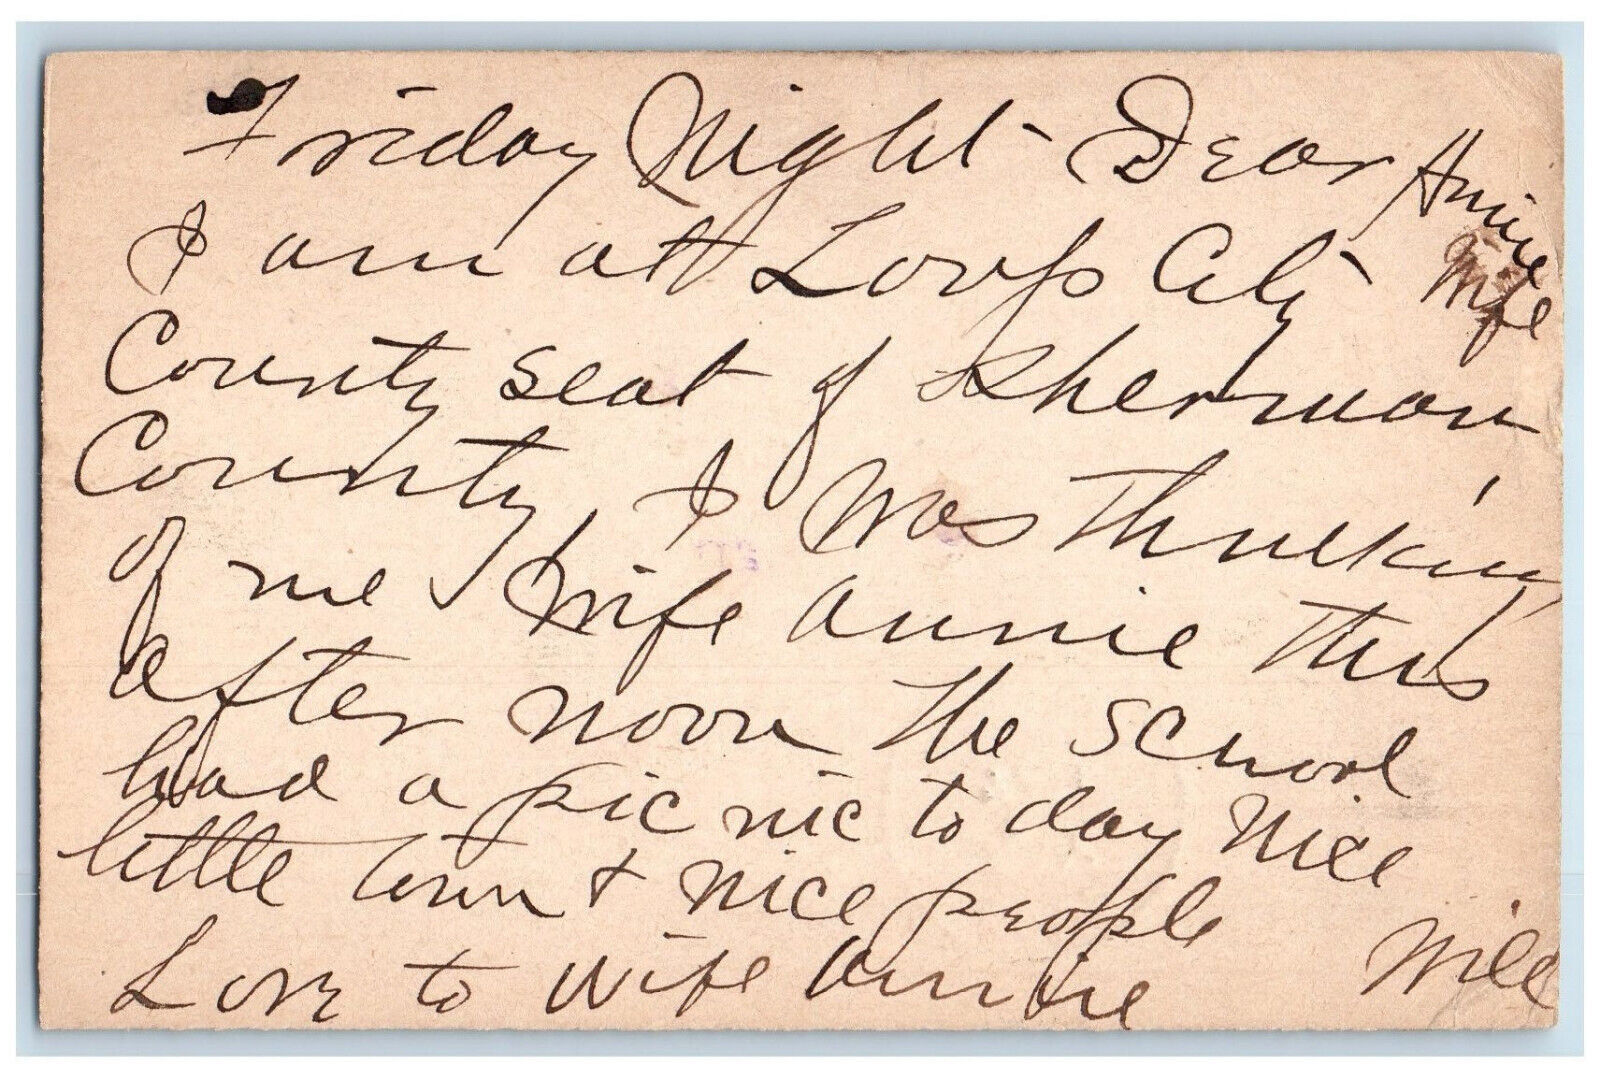 Friday Night - Dear Annie
I am at Loup City - Wife
County seat of Sherman
County, I was Thinking
of me Wife annie This
after noon The school
had a pic nic to day Nice
little Town + Nice people
Love to Wife annie Will